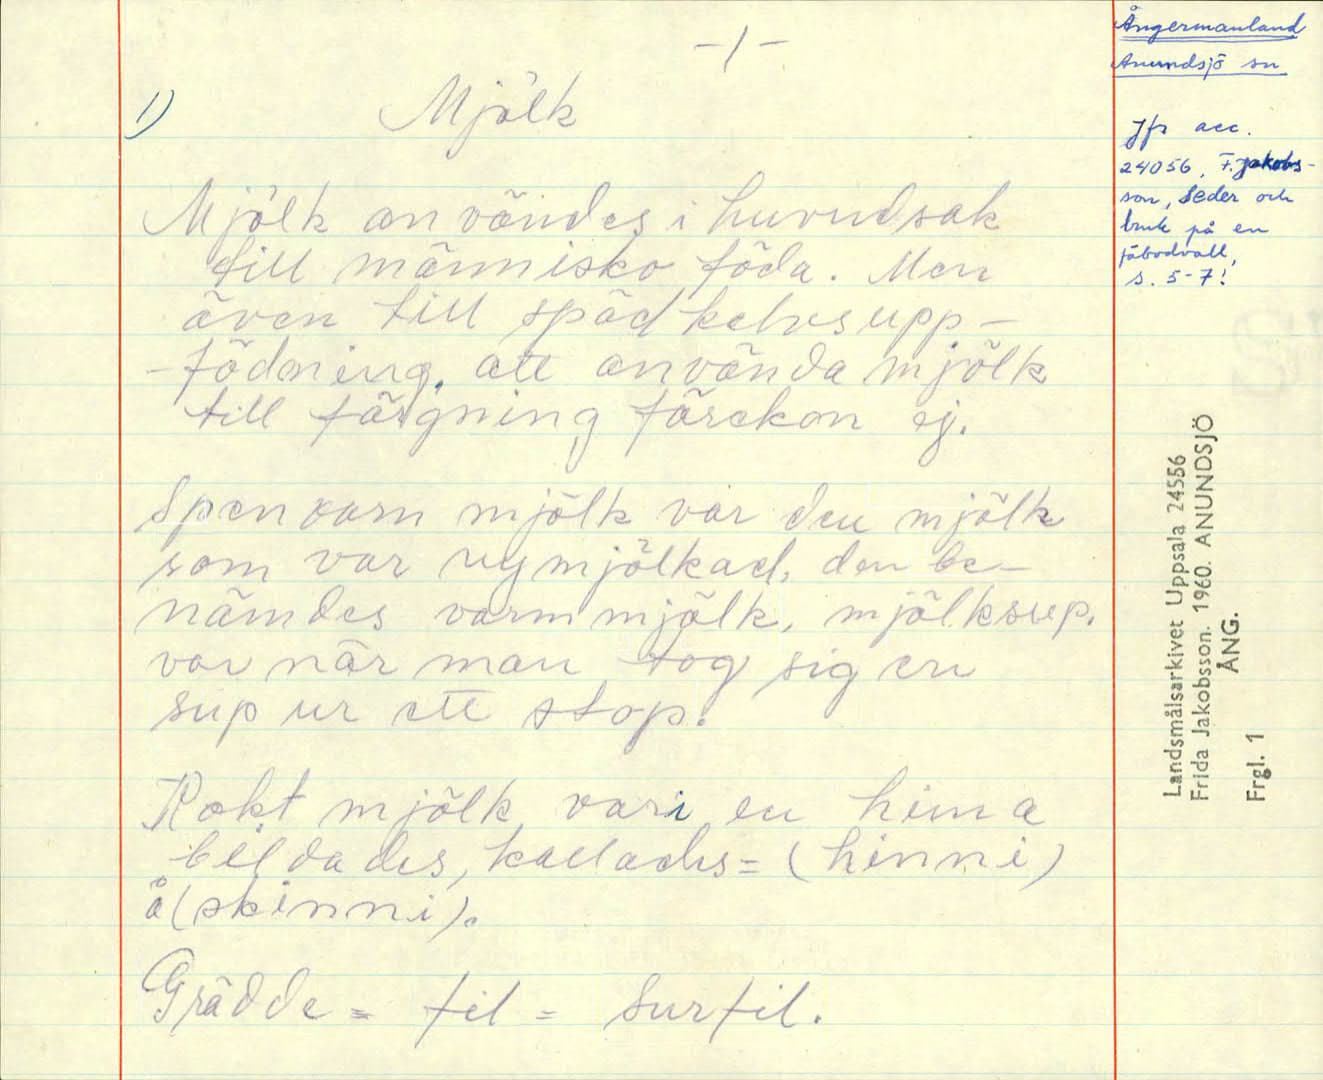 -1-
1) Mjölk
Mjölk användes i huvudsak
till människo föda. Men
även till spädkalvsupp-
-födning, att använda mjölk
till färgning förekom ej.
Spenvarm mjölk var den mjölk
som var nymjölkad, den be-
nämdes varmmjölk, mjölksup.
var när man tog sig en
sup ur ett stop.
Kokt mjölk vari en hinna
bildades, kallades = (hinni)
å (skinni).
Grädde = fil = Surfil.
Ångermanland
Anundsjö sn
Jfr acc.
24056, F. Jakobs-
son, Seder och
bruk på en
fäbodvall,
s. 5-7!
Landsmålsarkivet Uppsala 24556
Frida Jakobsson. 1960. ANUNDSJÖ
ÅNG.
Frgl. 1